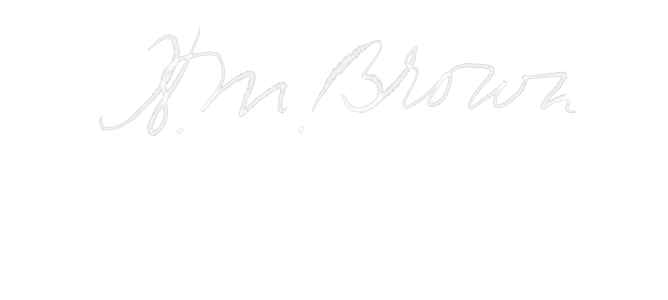 M. Brown